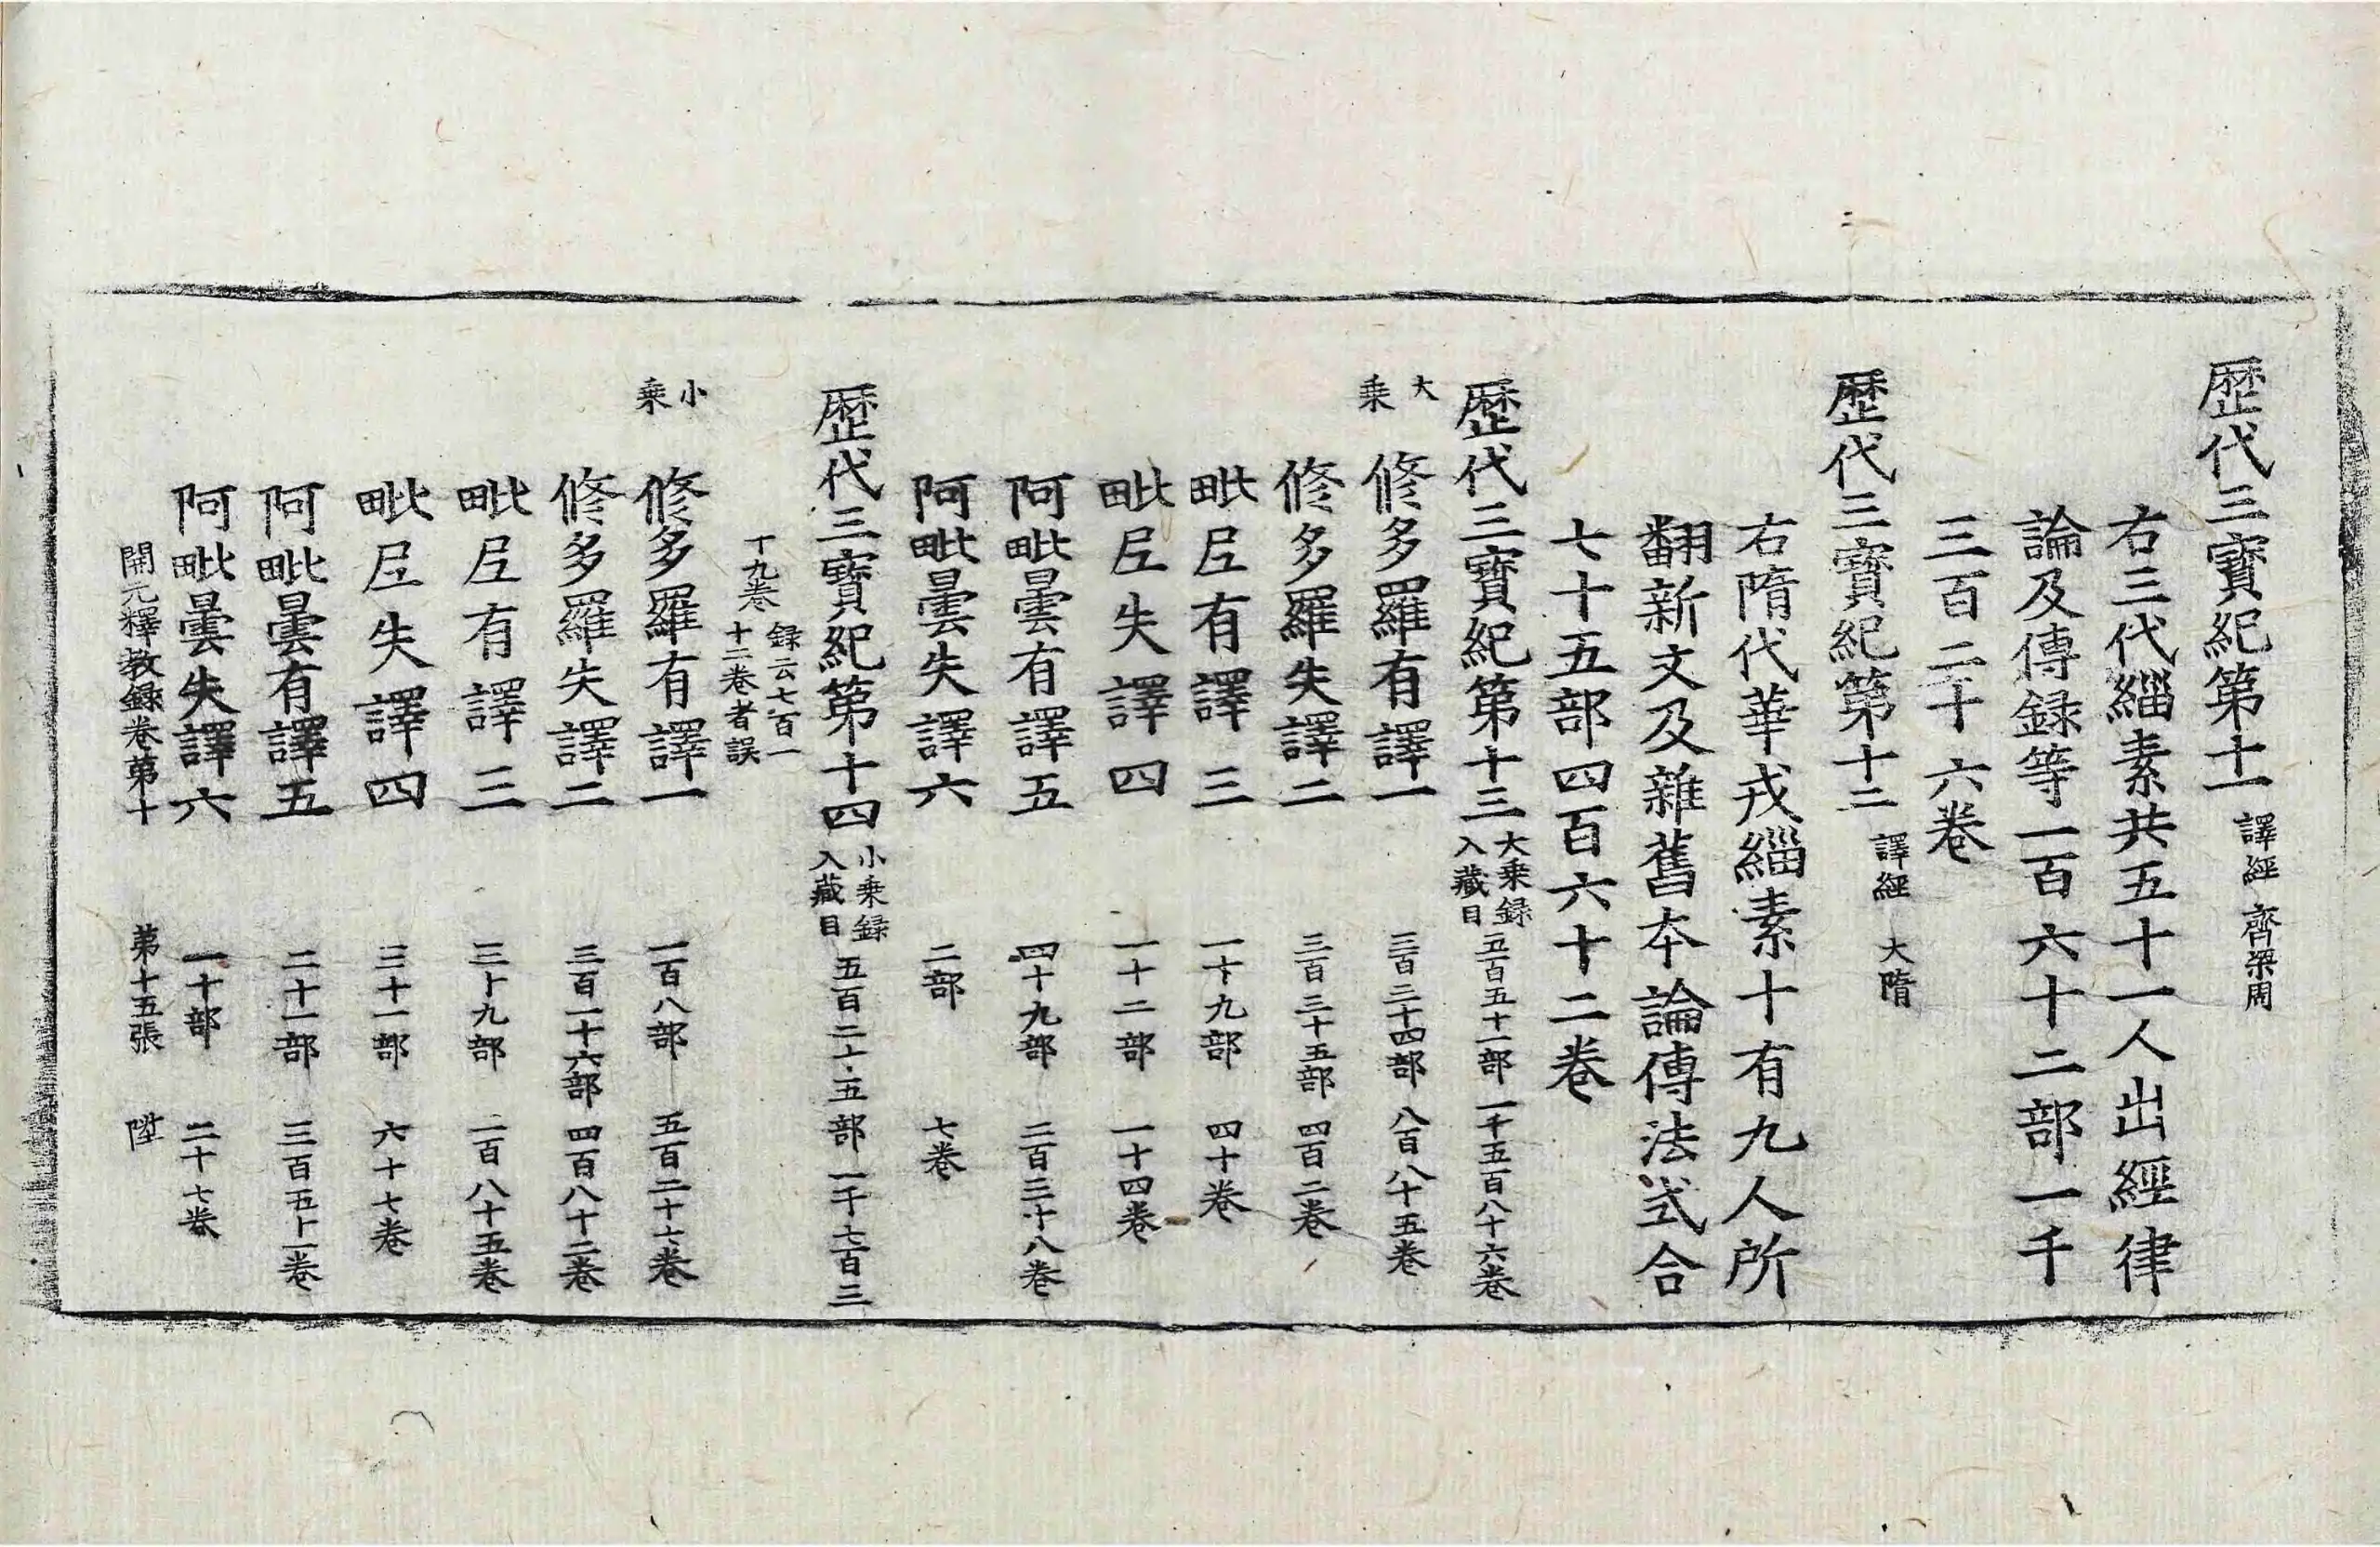 歷代三寶紀第十一 譯經 齊梁周
右三代緇素共五十一人出經律
論及傳録等一百六十二部一千
三百二十六卷
歷代三寶紀第十二 譯經 大隋
右隋代華戎緇素十有九人所
翻新文及雜舊本論傳法式合
七十五部四百六十二卷
歷代三寶紀第十三 大乗録入藏目 五百五十一部 一千五百八十六卷
大乗 修多羅有譯一 三百三十四部 八百八十五卷
修多羅失譯二 三百三十五部 四百二卷
毗𡰱有譯三 一十九部 四十卷
毗𡰱失譯四 一十二部 一十四卷
阿毗曇有譯五 四十九部 二百三十八卷
阿毗曇失譯六 二部 七卷
歷代三寶紀第十四 小乗録入藏目 五百二十五部 一千七百三
十九卷 録云七百一十二卷者誤
小乗 修多羅有譯一 一百八部 五百二十七卷
修多羅失譯二 三百一十六部 四百八十二卷
毗𡰱有譯三 三十九部 二百八十五卷
毗𡰱失譯四 三十一部 六十七卷
阿毗曇有譯五 二十一部 三百五十一卷
阿毗曇失譯六 一十部 二十七卷
開元釋教録卷第十 第十五張 陞